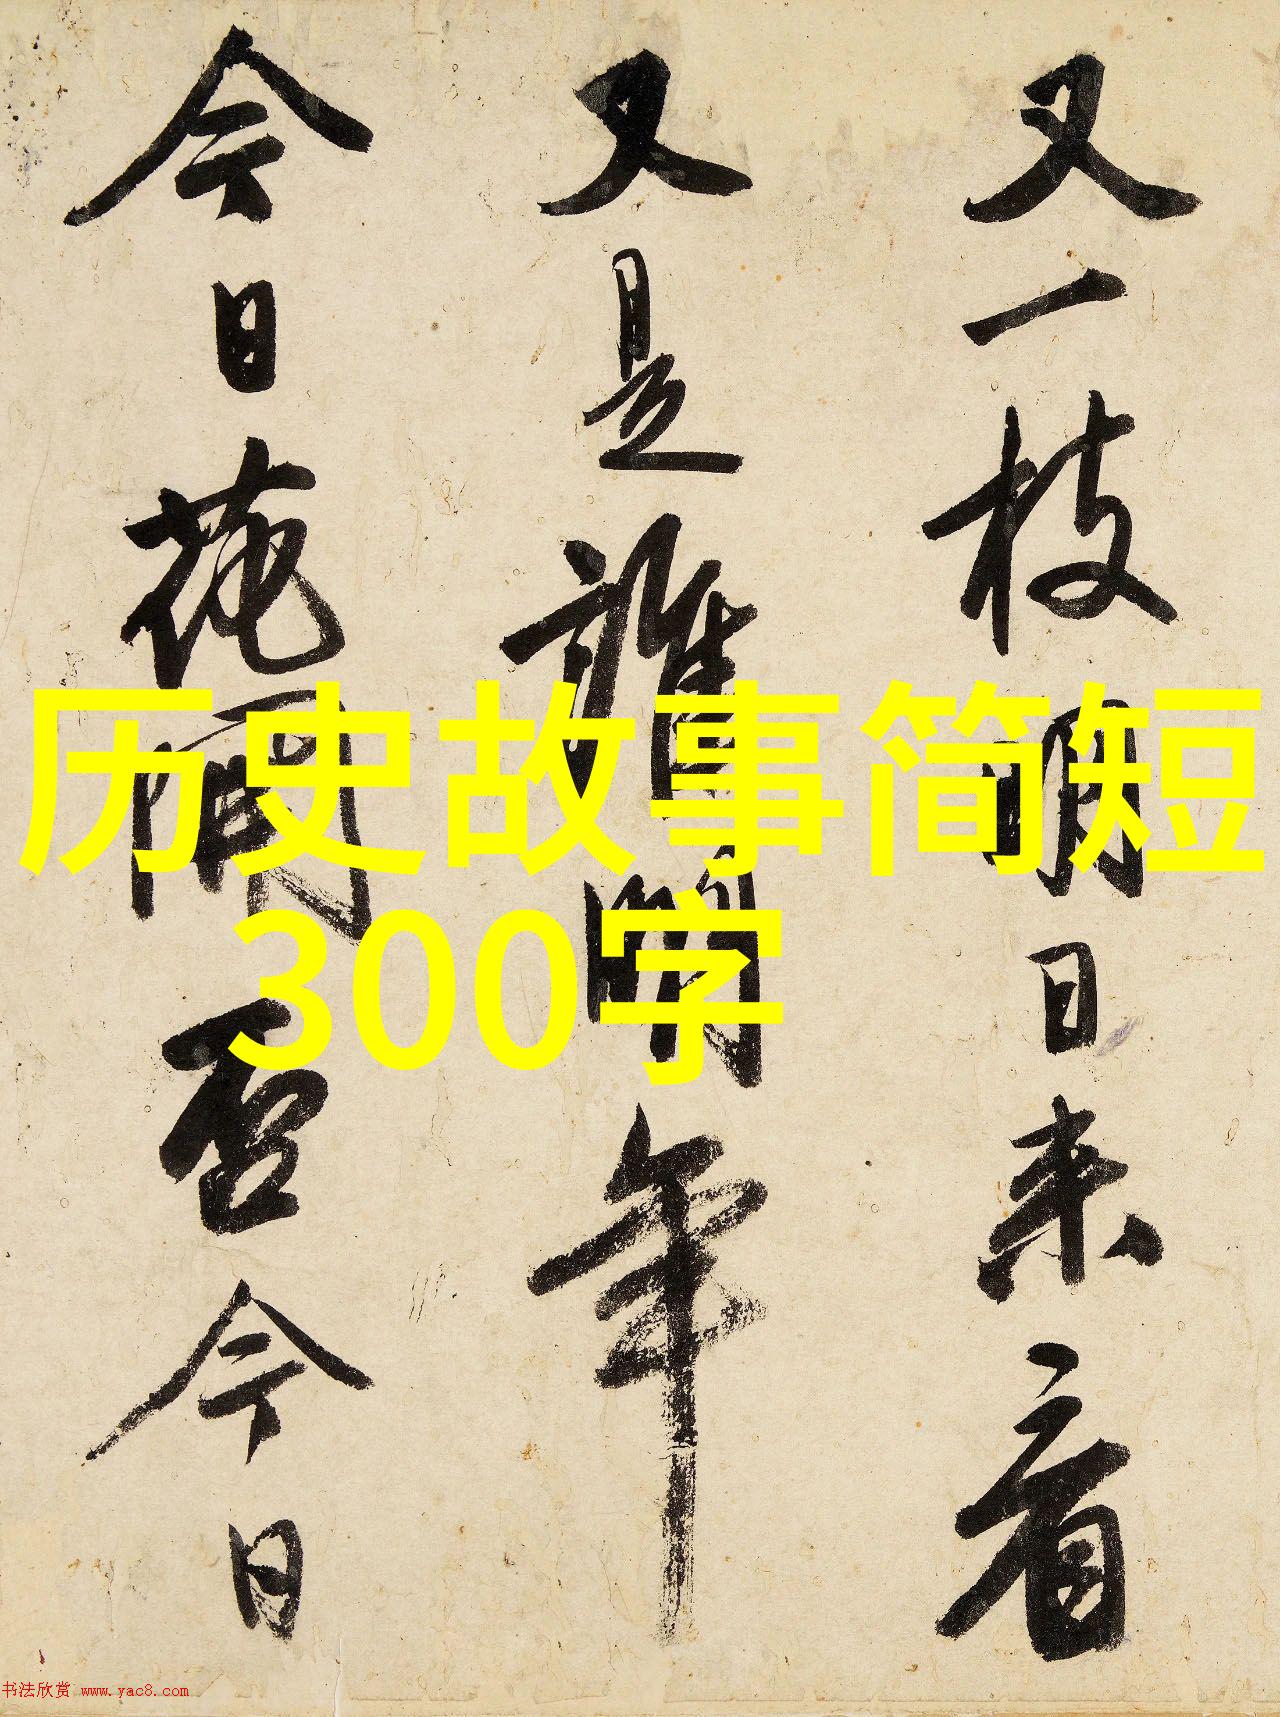 又一枝明日来看
又是誰明年
今日花開否今日
历史故事简短
300字
书法欣赏 www.yac8.com